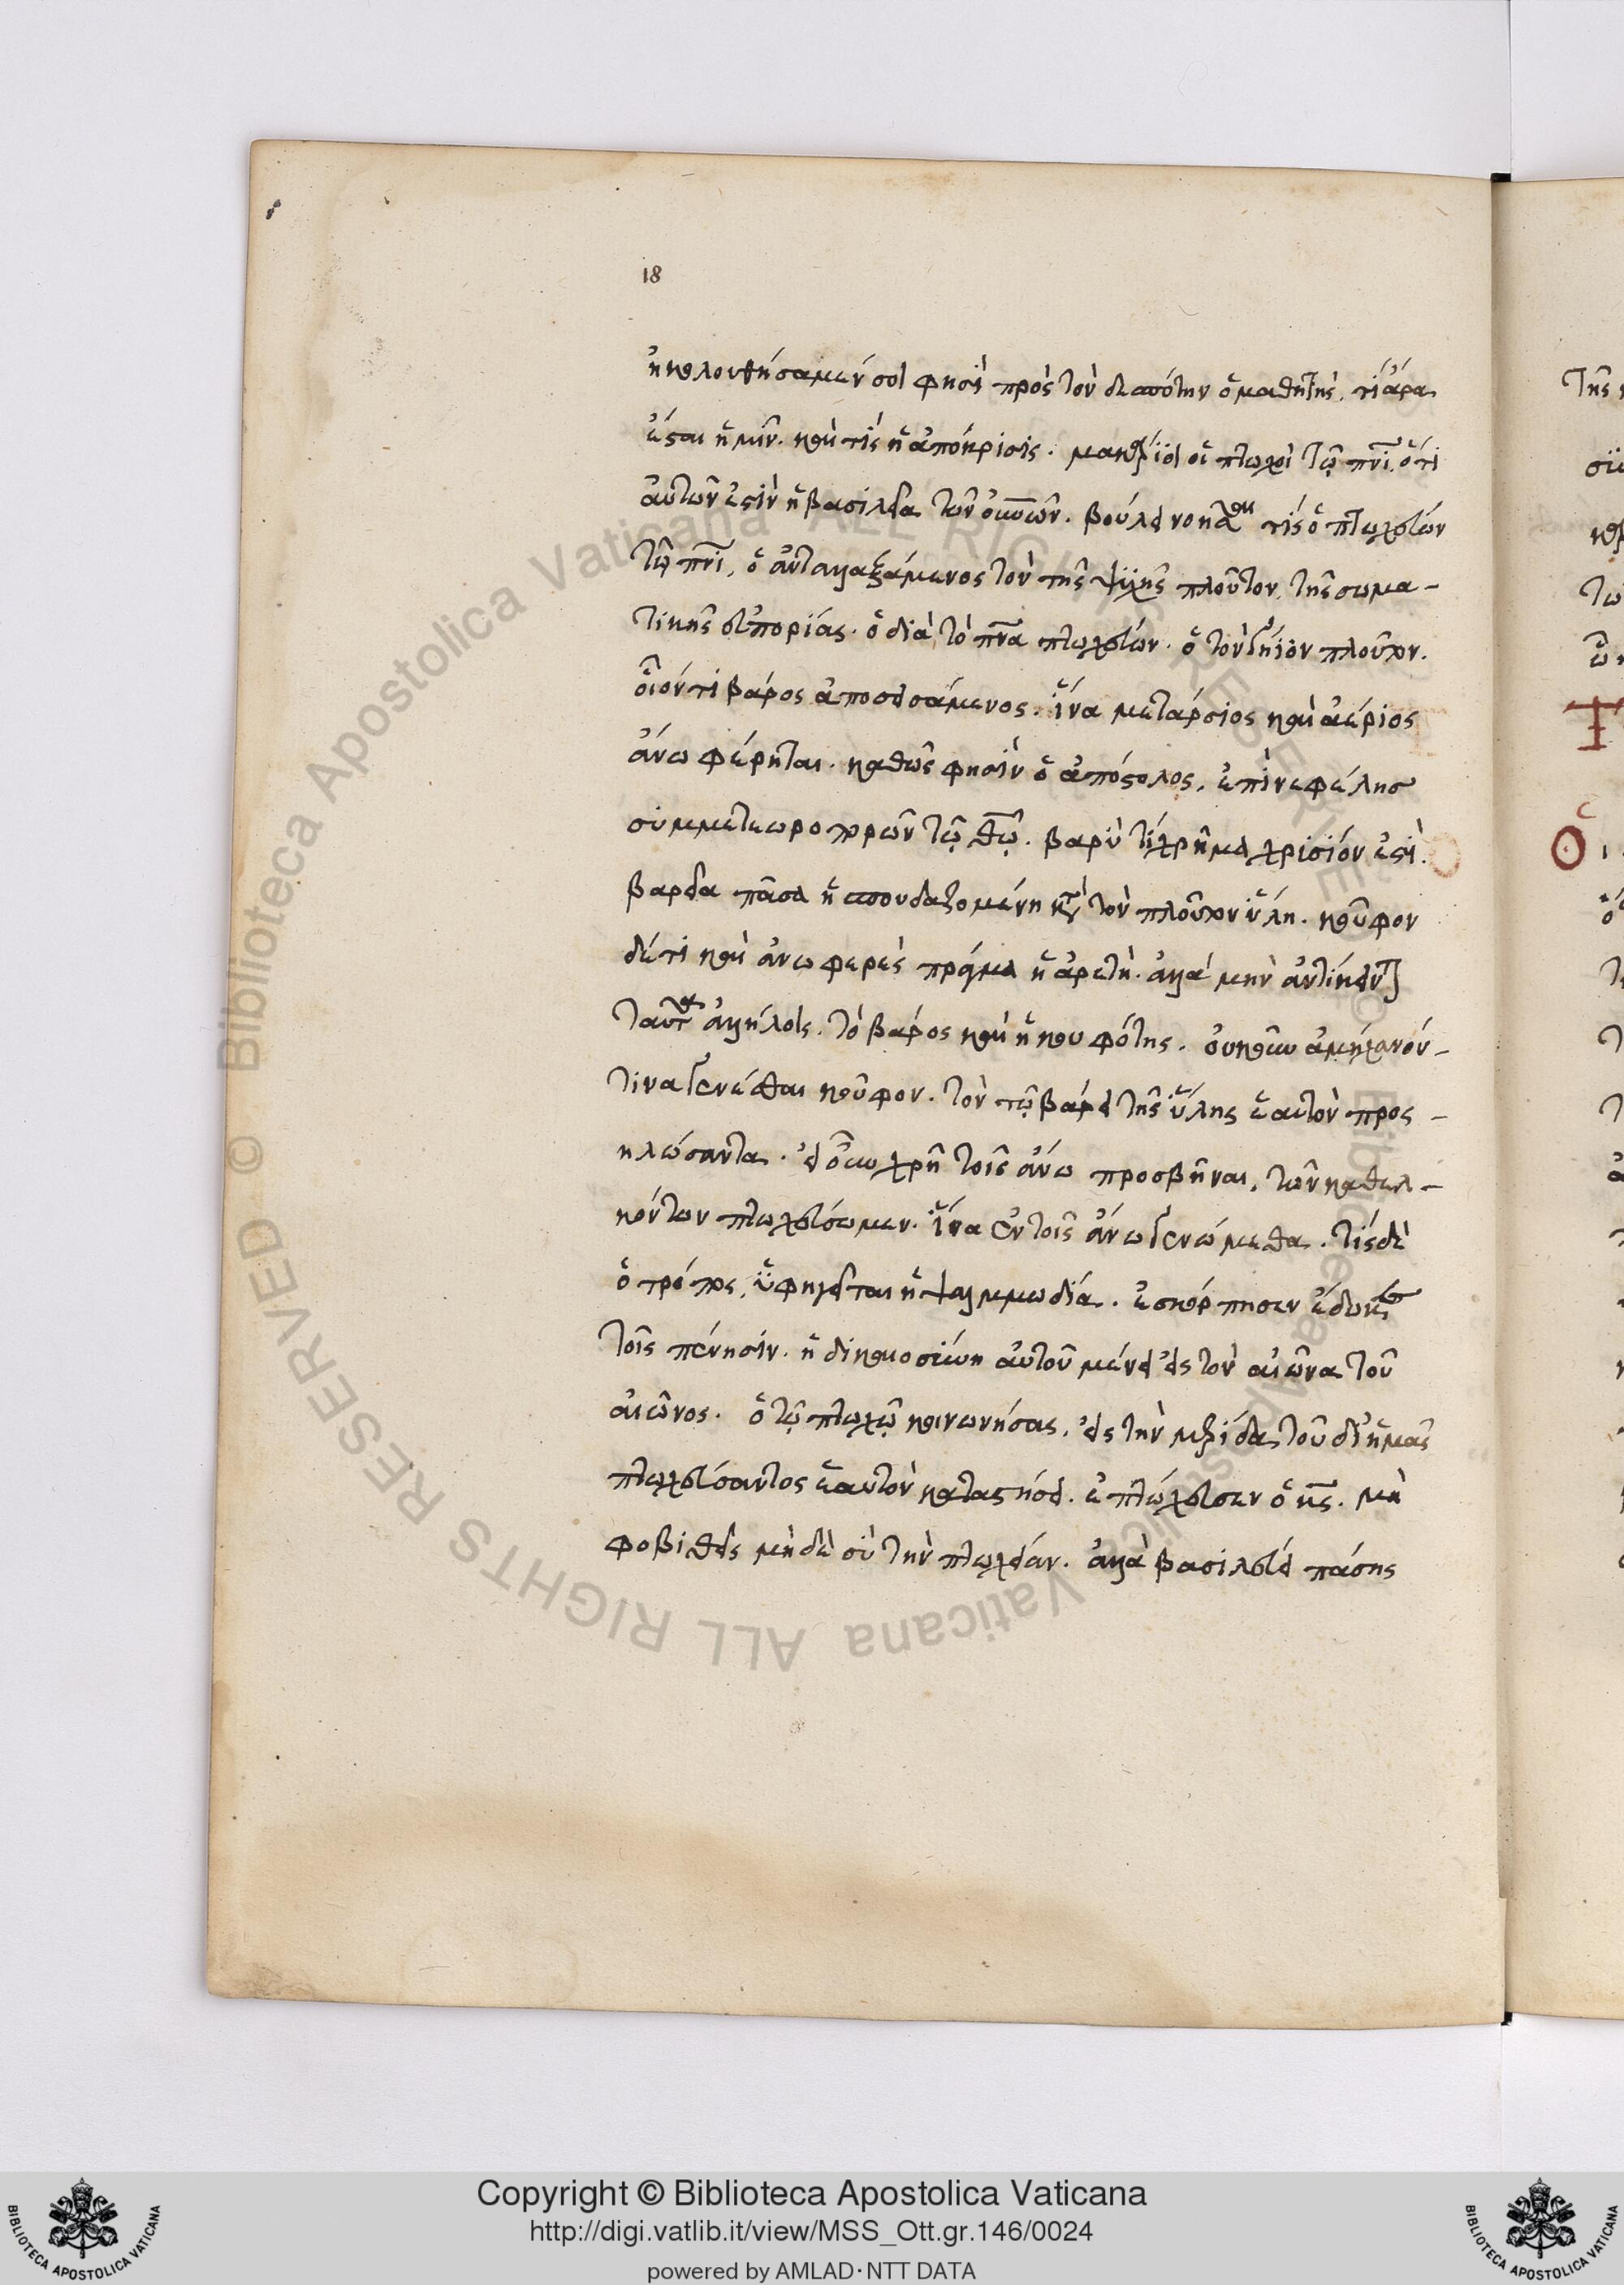 18
ἠκολουθήσαμέν σοι φησὶ πρὸς τὸν δεσπότην ὁ μαθητὴς. τί ἄρα
ἔσται ἡμῖν. καὶ τίς ἡ ἀπόκρισις. μακάριοι οἱ πτωχοὶ τῷ πνι. ὅτι
αὐτῶν ἐστὶν ἡ βασιλεία τῶν οὐνῶν. βούλει νοῆσαι τίς ὁ πτωχεύων
τῷ πνι, ὁ ἀνταλλαξάμενος τὸν τῆς ψυχῆς πλοῦτον, τῆς σωμα-
τικῆς εὐπορίας. ὁ διὰ τὸ πνα πτωχεύων. ὁ τὸν γήϊον πλοῦτον.
οἷόν τι βάρος ἀποσεισάμενος. ἵνα μετάρσιος καὶ ἀέριος
ἄνω φέρηται. καθώς φησὶν ὁ ἀπόστολος, ἐπὶ νεφέλης
συμμετεωροπορῶν τῷ θῷ. βαρύ τι χρῆμα χρισίον ἐστὶ.
βαρεῖα πᾶσα ἡ σπουδαζομένη κατὰ τὸν πλοῦτον ὕλη. κοῦφον
δέ τι καὶ ἀνωφερὲς πρᾶγμα ἡ ἀρετὴ. ἀλλὰ μὴν ἀντίκειται
ταῦτα ἀλλήλοις. τὸ βάρος καὶ ἡ κουφότης. οὐκοῦν ἀμήχανόν-
τινα γενέσθαι κοῦφον. τὸν τῷ βάρει τῆς ὕλης ἑαυτὸν προς-
ηλώσαντα. εἰ οὖν χρὴ τοῖς ἄνω προσβῆναι, τῶν καθελ-
κόντων πτωχεύσωμεν. ἵνα ἐν τοῖς ἄνω γενώμεθα. τίς δὲ
ὁ τρόπος, ὑφηγεῖται ἡ ψαλμωδία. ἐσκόρπησεν ἔδωκεν
τοῖς πένησιν. ἡ δικαιοσύνη αὐτοῦ μένει εἰς τὸν αἰῶνα τοῦ
αἰῶνος. ὁ τῷ πτωχῷ κοινωνήσας, εἰς τὴν μερίδα τοῦ δι' ἡμᾶς
πτωχεύσαντος ἑαυτὸν καταστήσει. ἐπτώχευσεν ὁ κς. μὴ
φοβιθεὶς μηδὲ σὺ τὴν πτωχείαν. ἀλλὰ βασιλεύει πάσης
Copyright © Biblioteca Apostolica Vaticana
http://digi.vatlib.it/view/MSS_Ott.gr.146/0024
powered by AMLAD·NTT DATA